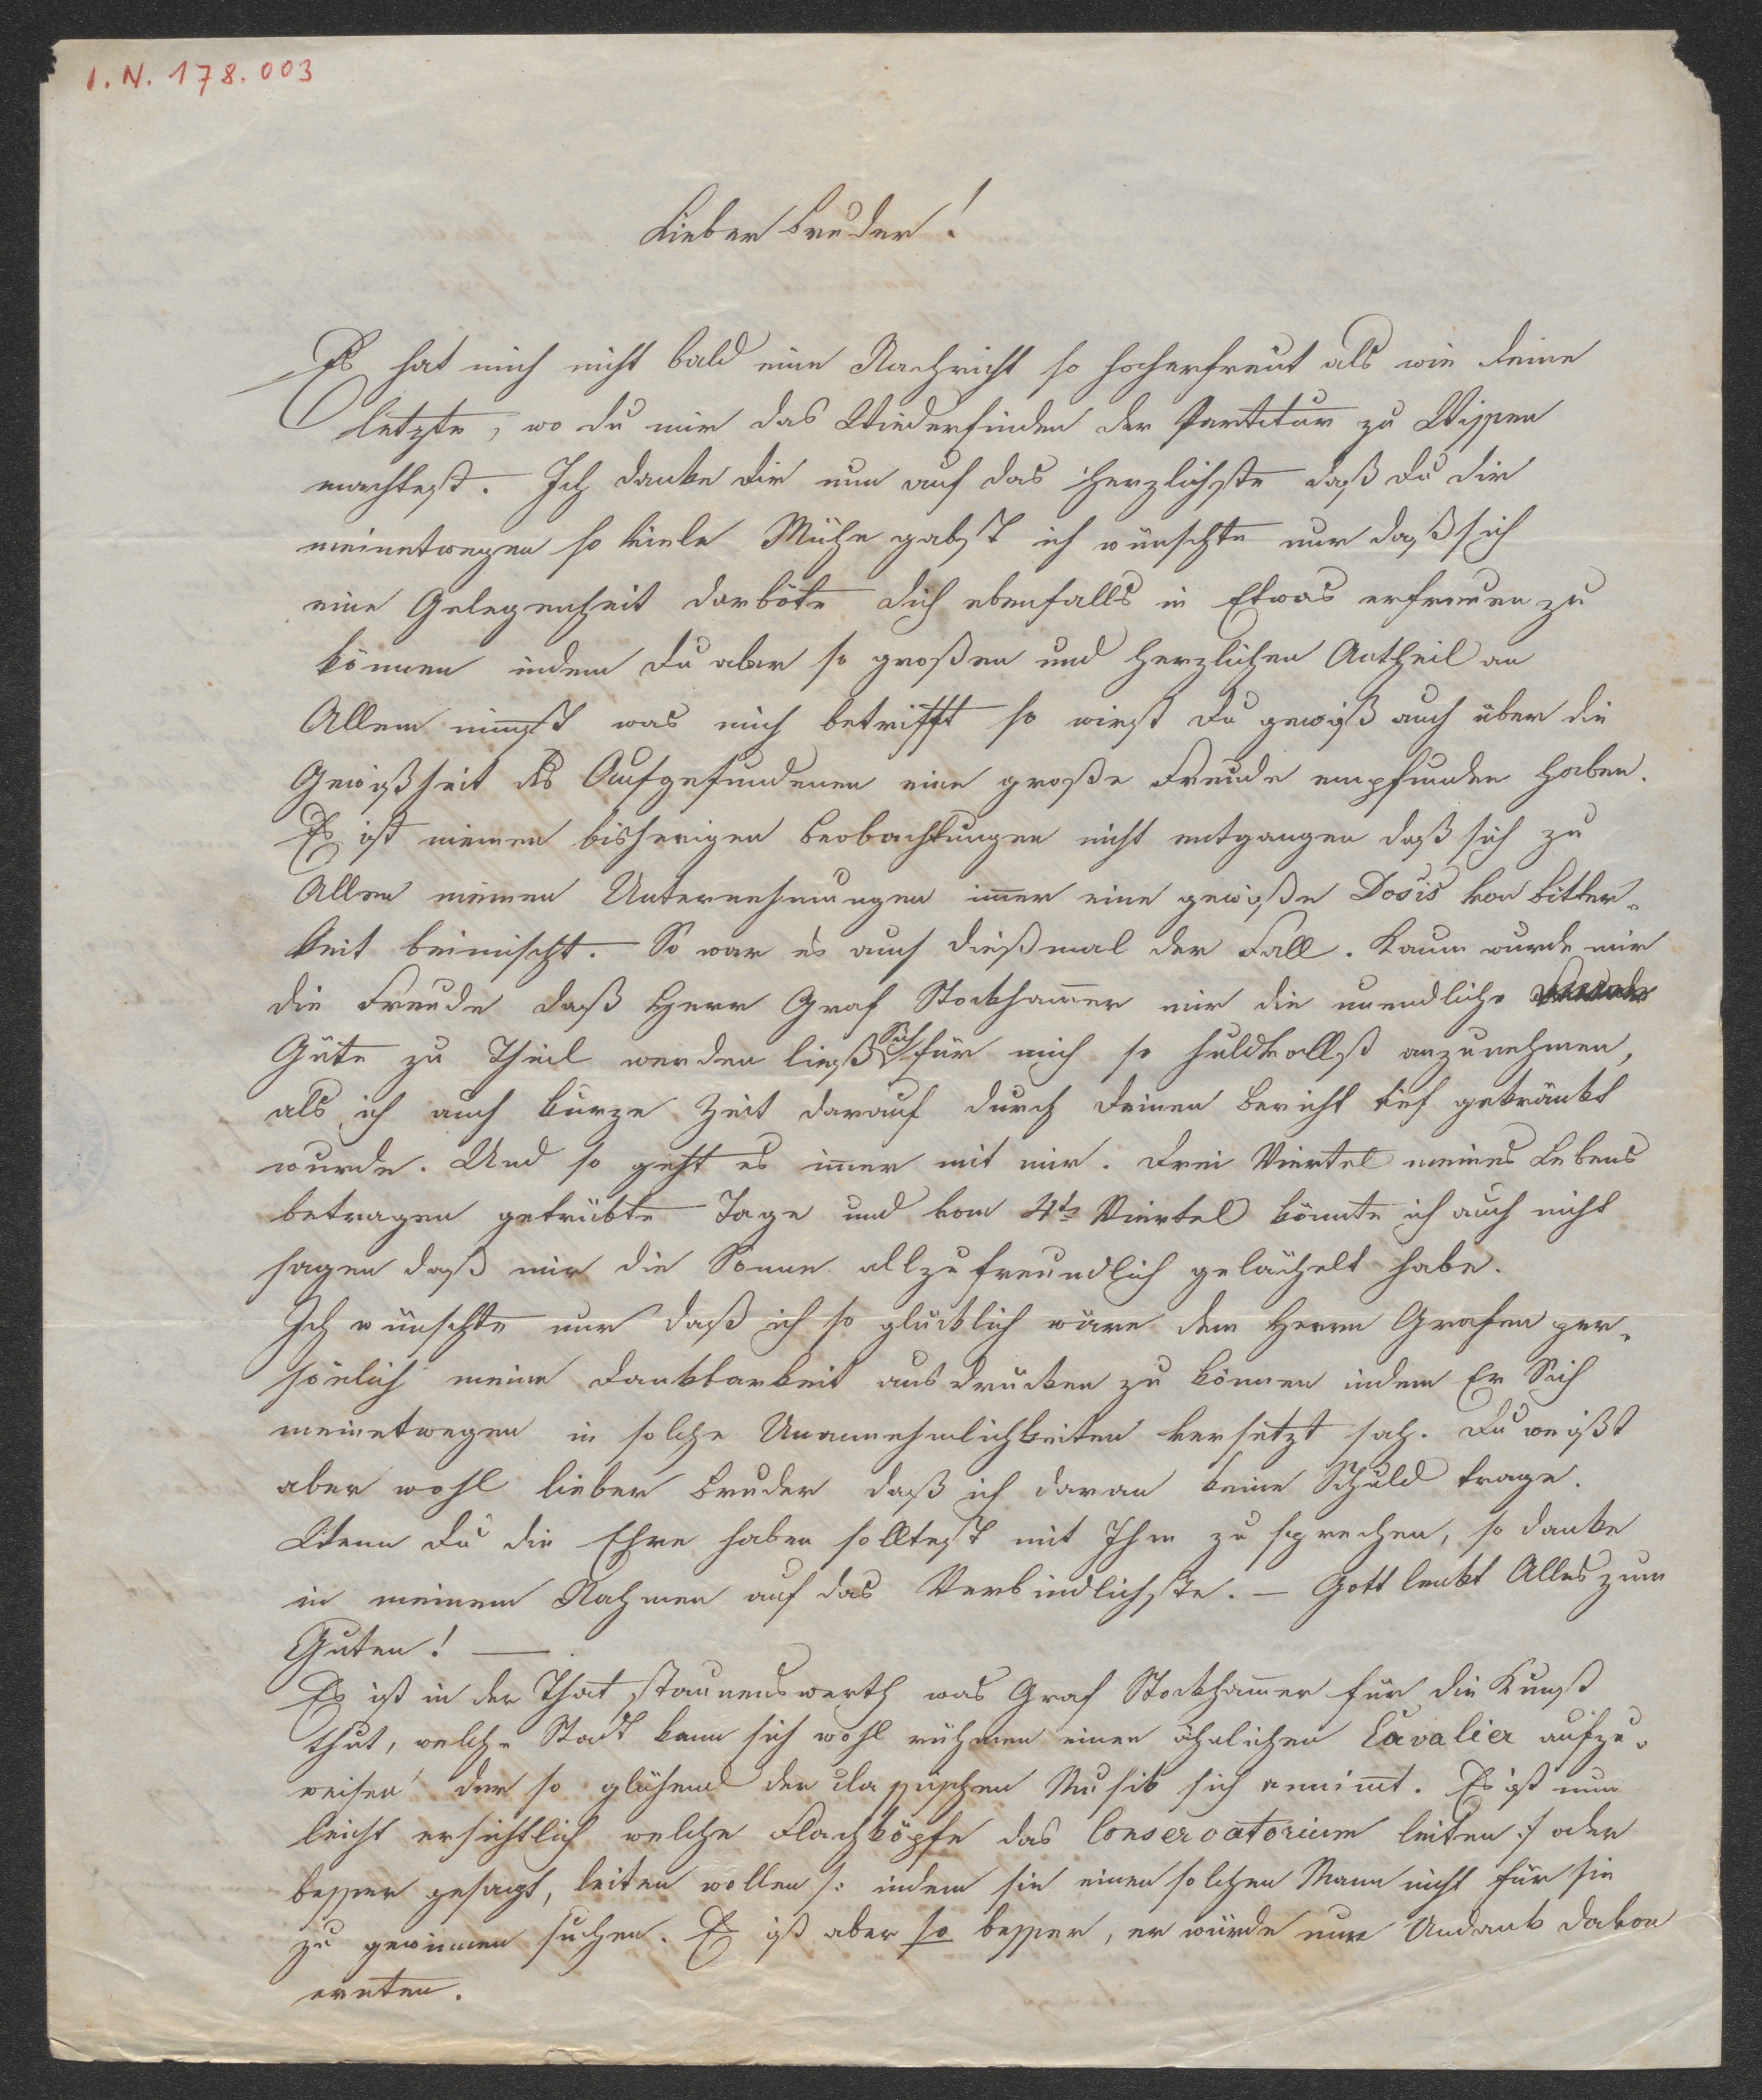 I.N. 178.003
Lieber Bruder!
Es hat mich nicht bald eine Nachricht so hocherfreut als wie deine
letzte, wo du mir das Wiederfinden der Partitur zu Wissen
machtest. Ich danke dir nun auf das Herzlichste daß du dir
meinetwegen so viele Mühe gabst ich wünschte nur daß sich
eine Gelegenheit darböte dich ebenfalls in Etwas erfreuen zu
können indem du aber so großen und herzlichen Antheil an
Allem nim̅st was mich betrifft so wirst du gewiß auch über die
Gewißheit des Aufgefundenen eine große Freude empfunden haben.
Es ist meinen bisherigen Beobachtungen nicht entgangen daß sich zu
Allen meinen Unternehmungen im̅er eine gewiße Dosis von Bitter-
keit beimischt. So war es auch dießmal der Fall. Kaum wurde mir
die Freude daß Herr Graf Stockham̅er mir die unendliche
Güte zu Theil werden ließ Sich für mich so huldvollst anzunehmen,
als ich auch kurze Zeit darauf durch deinen Bericht tief gekränkt
wurde. Und so geht es im̅er mit mir. Drei Viertel meines Lebens
betragen getrübte Tage und vom 4ts Viertel könnte ich auch nicht
sagen daß mir die Sonne allzufreundlich gelächelt habe.
Ich wünschte nur daß ich so glücklich wäre dem Herrn Grafen per-
sönlich meine Dankbarkeit ausdrücken zu können indem Er Sich
meinetwegen in solche Unannehmlichkeiten versetzt sah. Du weißt
aber wohl lieber Bruder daß ich daran keine Schuld trage.
Wenn du die Ehre haben solltest mit Ihm zu sprechen, so danke
in meinem Nahmen auf das Verbindlichste. – Gott lenkt Alles zum
Guten! —
Es ist in der That staunenswerth was Graf Stockham̅er für die Kunst
thut, welche Stadt kann sich wohl rühmen einen ähnlichen Cavalier aufzu-
weisen der so glühend der classischen Musik sich annim̅t. Es ist nun
leicht ersichtlich welche Flachköpfe das Conservatorium leiten :/ oder
besser gesagt, leiten wollen /: indem sie einen solchen Mann nicht für sie
zu gewinnen suchen. Es ist aber so besser, er würde nur Undank davon
ernten.